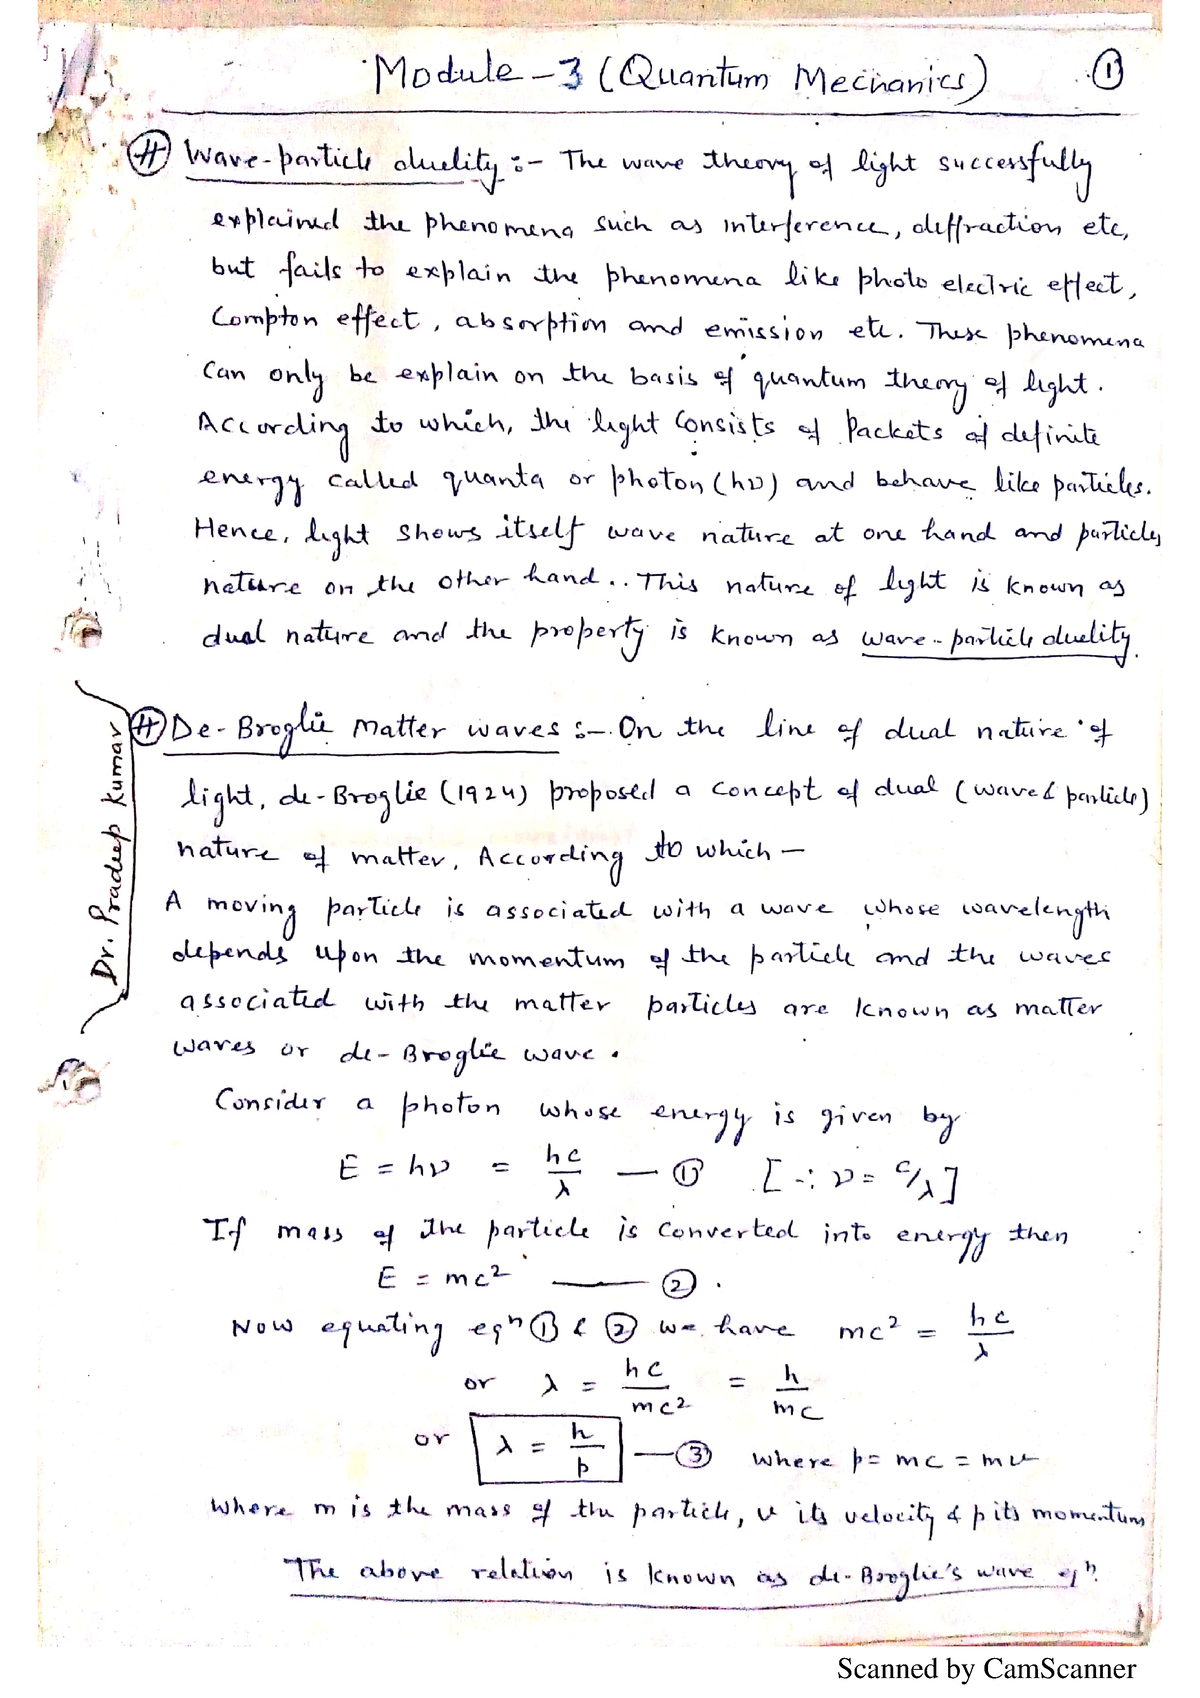 Module-3 (Quantum Mechanics) ①
# Wave-particle duelity :- The wave theory of light successfully
explained the phenomena such as interference, deffraction etc,
but fails to explain the phenomena like photo electric effect,
Compton effect, absorption and emission etc. These phenomena
can only be explain on the basis of quantum theory of light.
According to which, the light consists of Packets of definite
energy called quanta or photon (hν) and behave like particles.
Hence, light shows itself wave nature at one hand and particles
nature on the other hand.. This nature of light is known as
dual nature and the property is known as wave-particle duelity.
Dr. Pradeep Kumar
# De-Broglie Matter waves :- On the line of dual nature of
light, de-Broglie (1924) proposed a concept of dual (wave & particle)
nature of matter, According to which —
A moving particle is associated with a wave whose wavelength
depends upon the momentum of the particle and the waves
associated with the matter particles are known as matter
waves or de-Broglie wave.
Consider a photon whose energy is given by
E = hν = hc/λ — ① [∵ ν = c/λ]
If mass of the particle is converted into energy then
E = mc² — ② .
Now equating eqⁿ ① & ② we have mc² = hc/λ
or λ = hc/mc² = h/mc
or λ = h/p — ③ where p = mc = mv
where m is the mass of the particle, v its velocity & p its momentum
The above relation is known as de-Broglie's wave eqⁿ.
Scanned by CamScanner